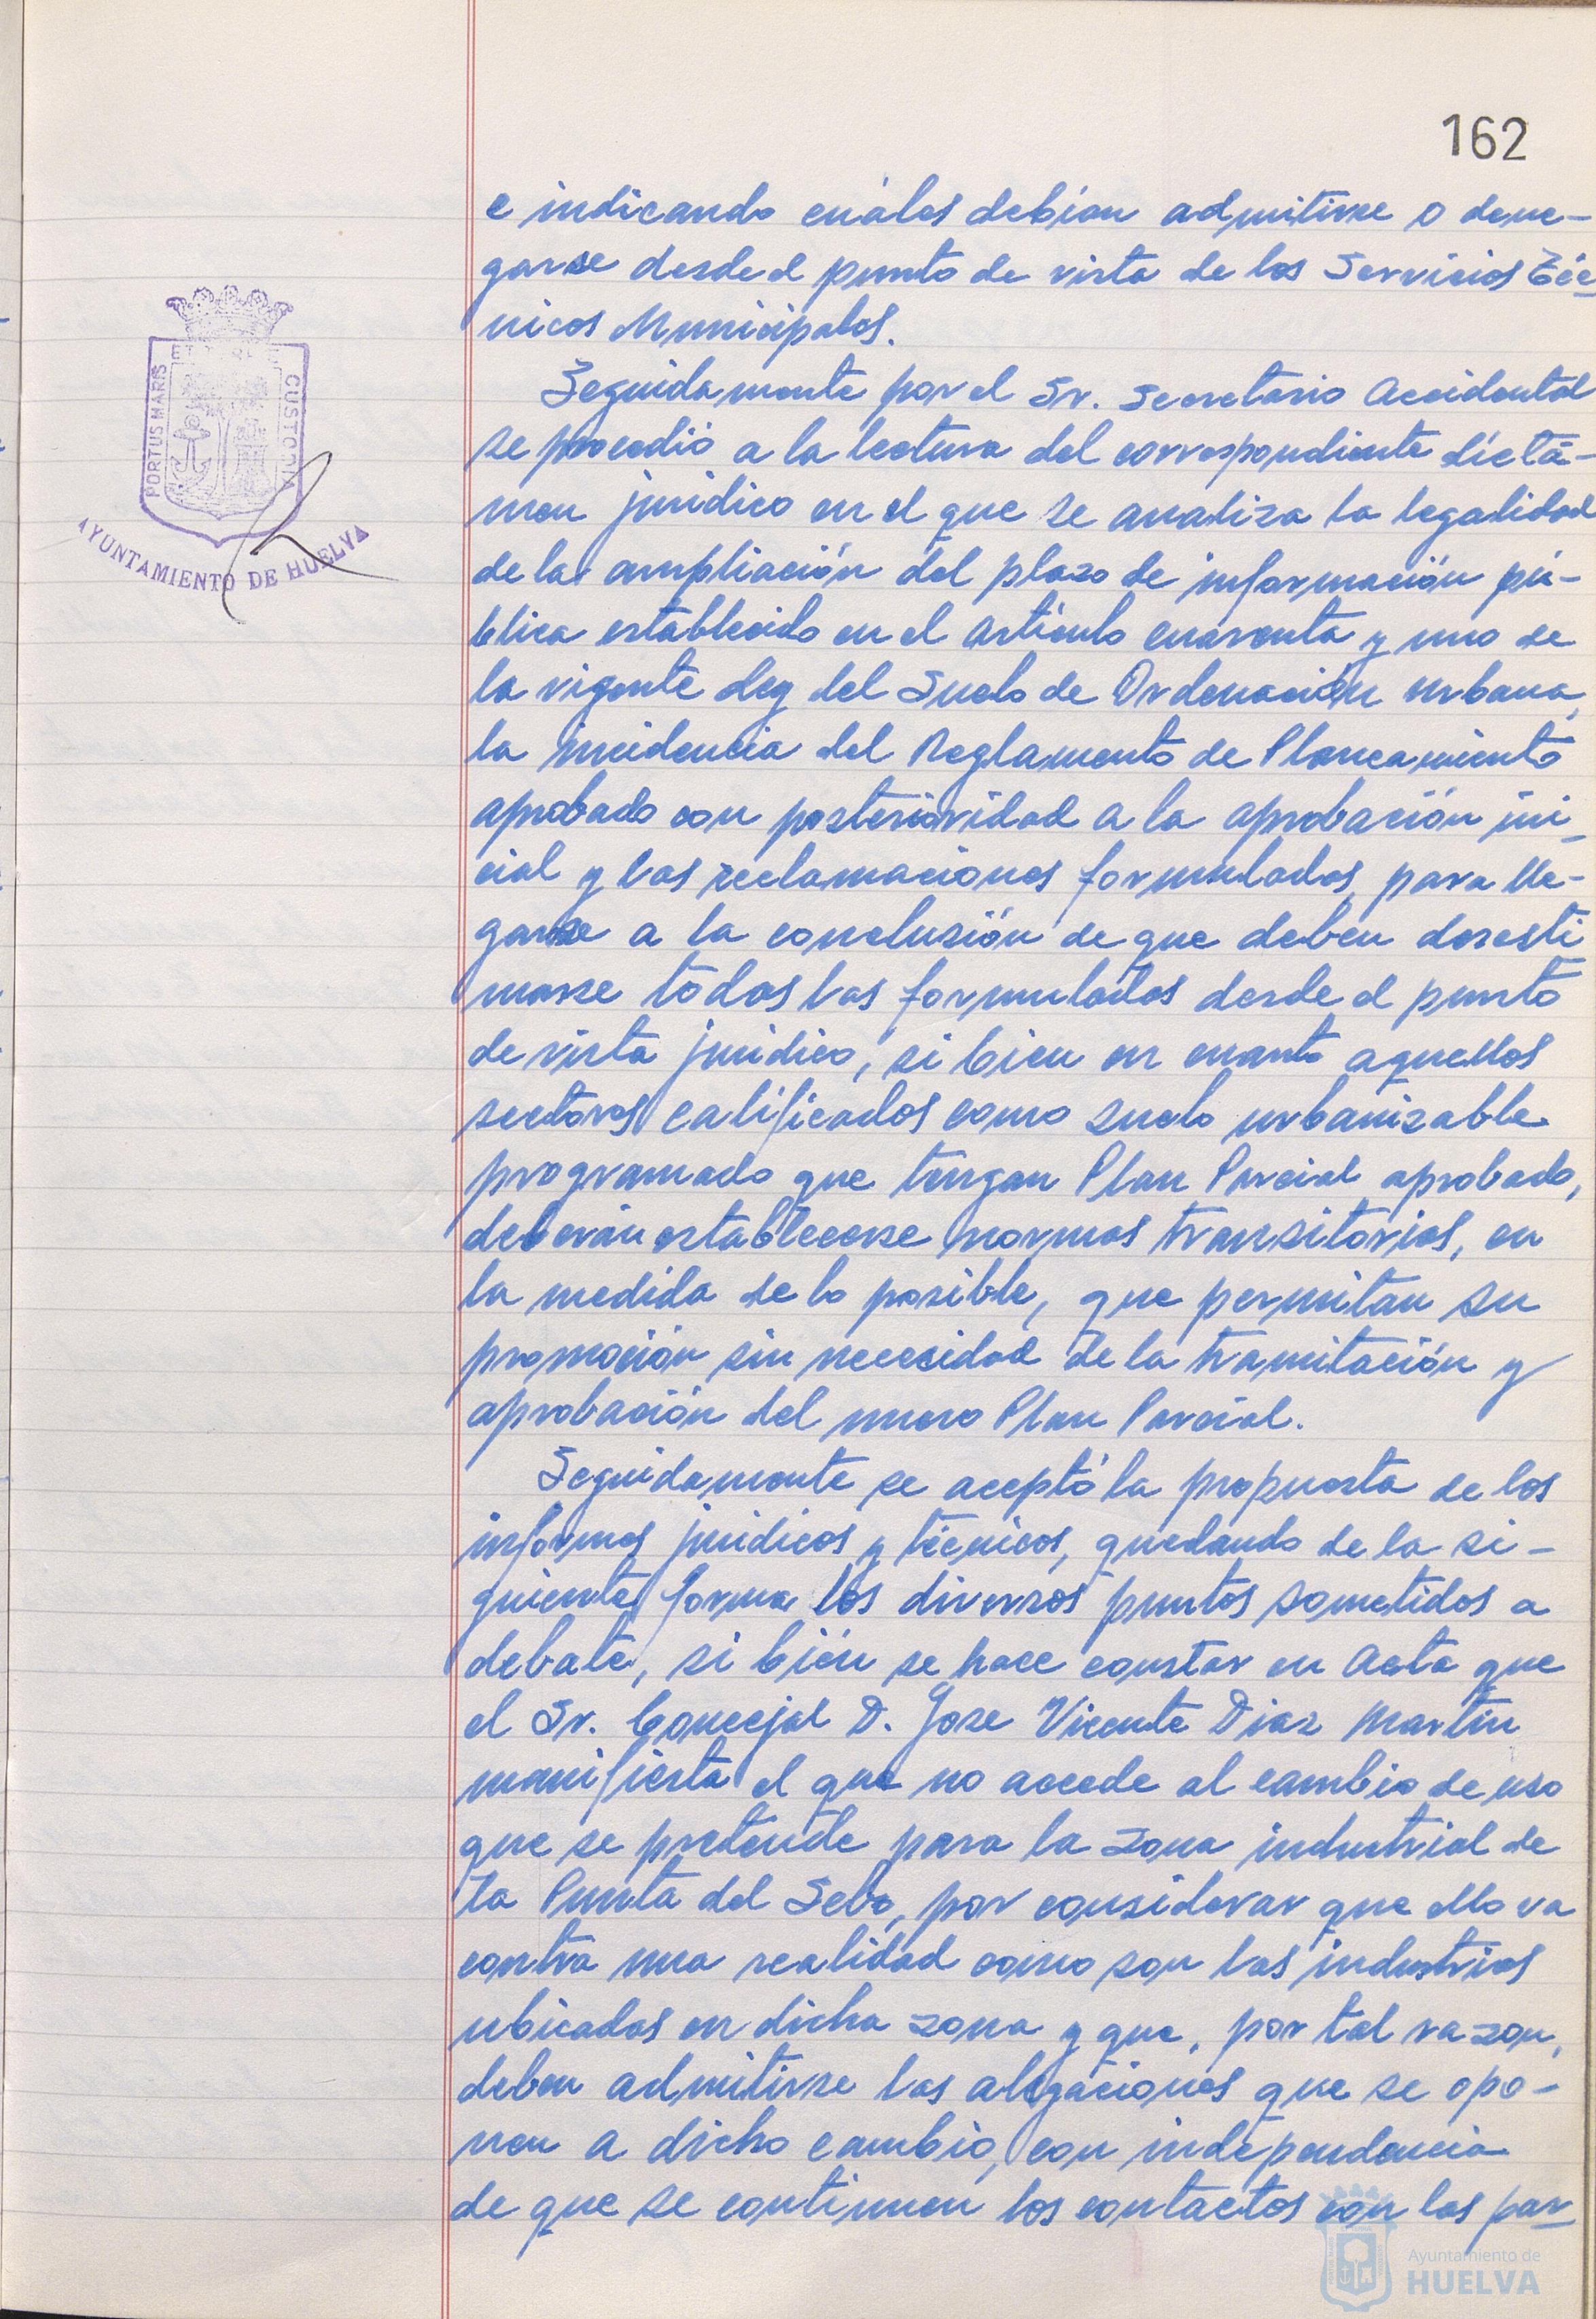 162
e indicando cuáles debían admitirse o dene-
garse desde el punto de vista de los Servicios Téc-
nicos Municipales.
Seguidamente por el Sr. Secretario Accidental
se procedió a la lectura del correspondiente dictá-
men jurídico en el que se analiza la legalidad
de la ampliación del plazo de información pú-
blica establecido en el artículo cuarenta y uno de
la vigente Ley del Suelo de Ordenación Urbana,
la incidencia del Reglamento de Planeamiento
aprobado con posterioridad a la aprobación ini-
cial y las reclamaciones formuladas, para lle-
garse a la conclusión de que deben desesti
marse todas las formuladas desde el punto
de vista jurídico, si bien en cuanto aquellos
sectores calificados como suelo urbanizable
programado que tengan Plan Parcial aprobado,
deberán establecerse normas transitorias, en
la medida de lo posible, que permitan su
promoción sin necesidad de la tramitación y
aprobación del nuevo Plan Parcial.
Seguidamente se aceptó la propuesta de los
informes jurídicos y técnicos, quedando de la si-
guiente forma los diversos puntos sometidos a
debate, si bién se hace constar en Acta que
el Sr. Concejal D. Jose Vicente Diaz Martin
manifiesta el que no accede al cambio de uso
que se pretende para la zona industrial de
la Punta del Sebo, por considerar que ello va
contra una realidad como son las industrias
ubicadas en dicha zona y que, por tal razon,
deben admitirse las alegaciones que se opo-
nen a dicho cambio, con independencia
de que se continuen los contactos con las par
PORTUS MARIS
CUSTODIA
AYUNTAMIENTO DE HUELVA
Ayuntamiento de
HUELVA